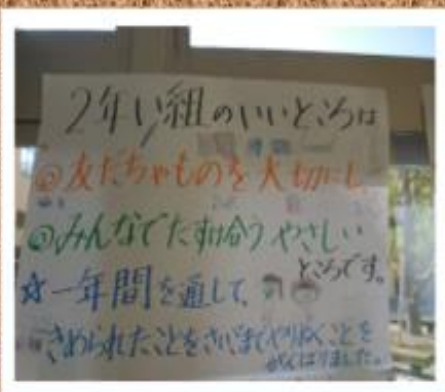 2年い組のいいところは
◎友だちやものを大切にし
◎みんなでたすけ合うやさしい
ところです。
☆一年間を通して、
きめられたことをさいごまでやりぬくことを
がんばりました。